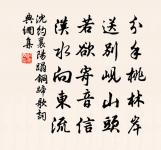 分手桃林岸
送別峴山頭
若欲寄音信
漢水向東流
沈約襄陽蹋銅蹄歌詞
典網集